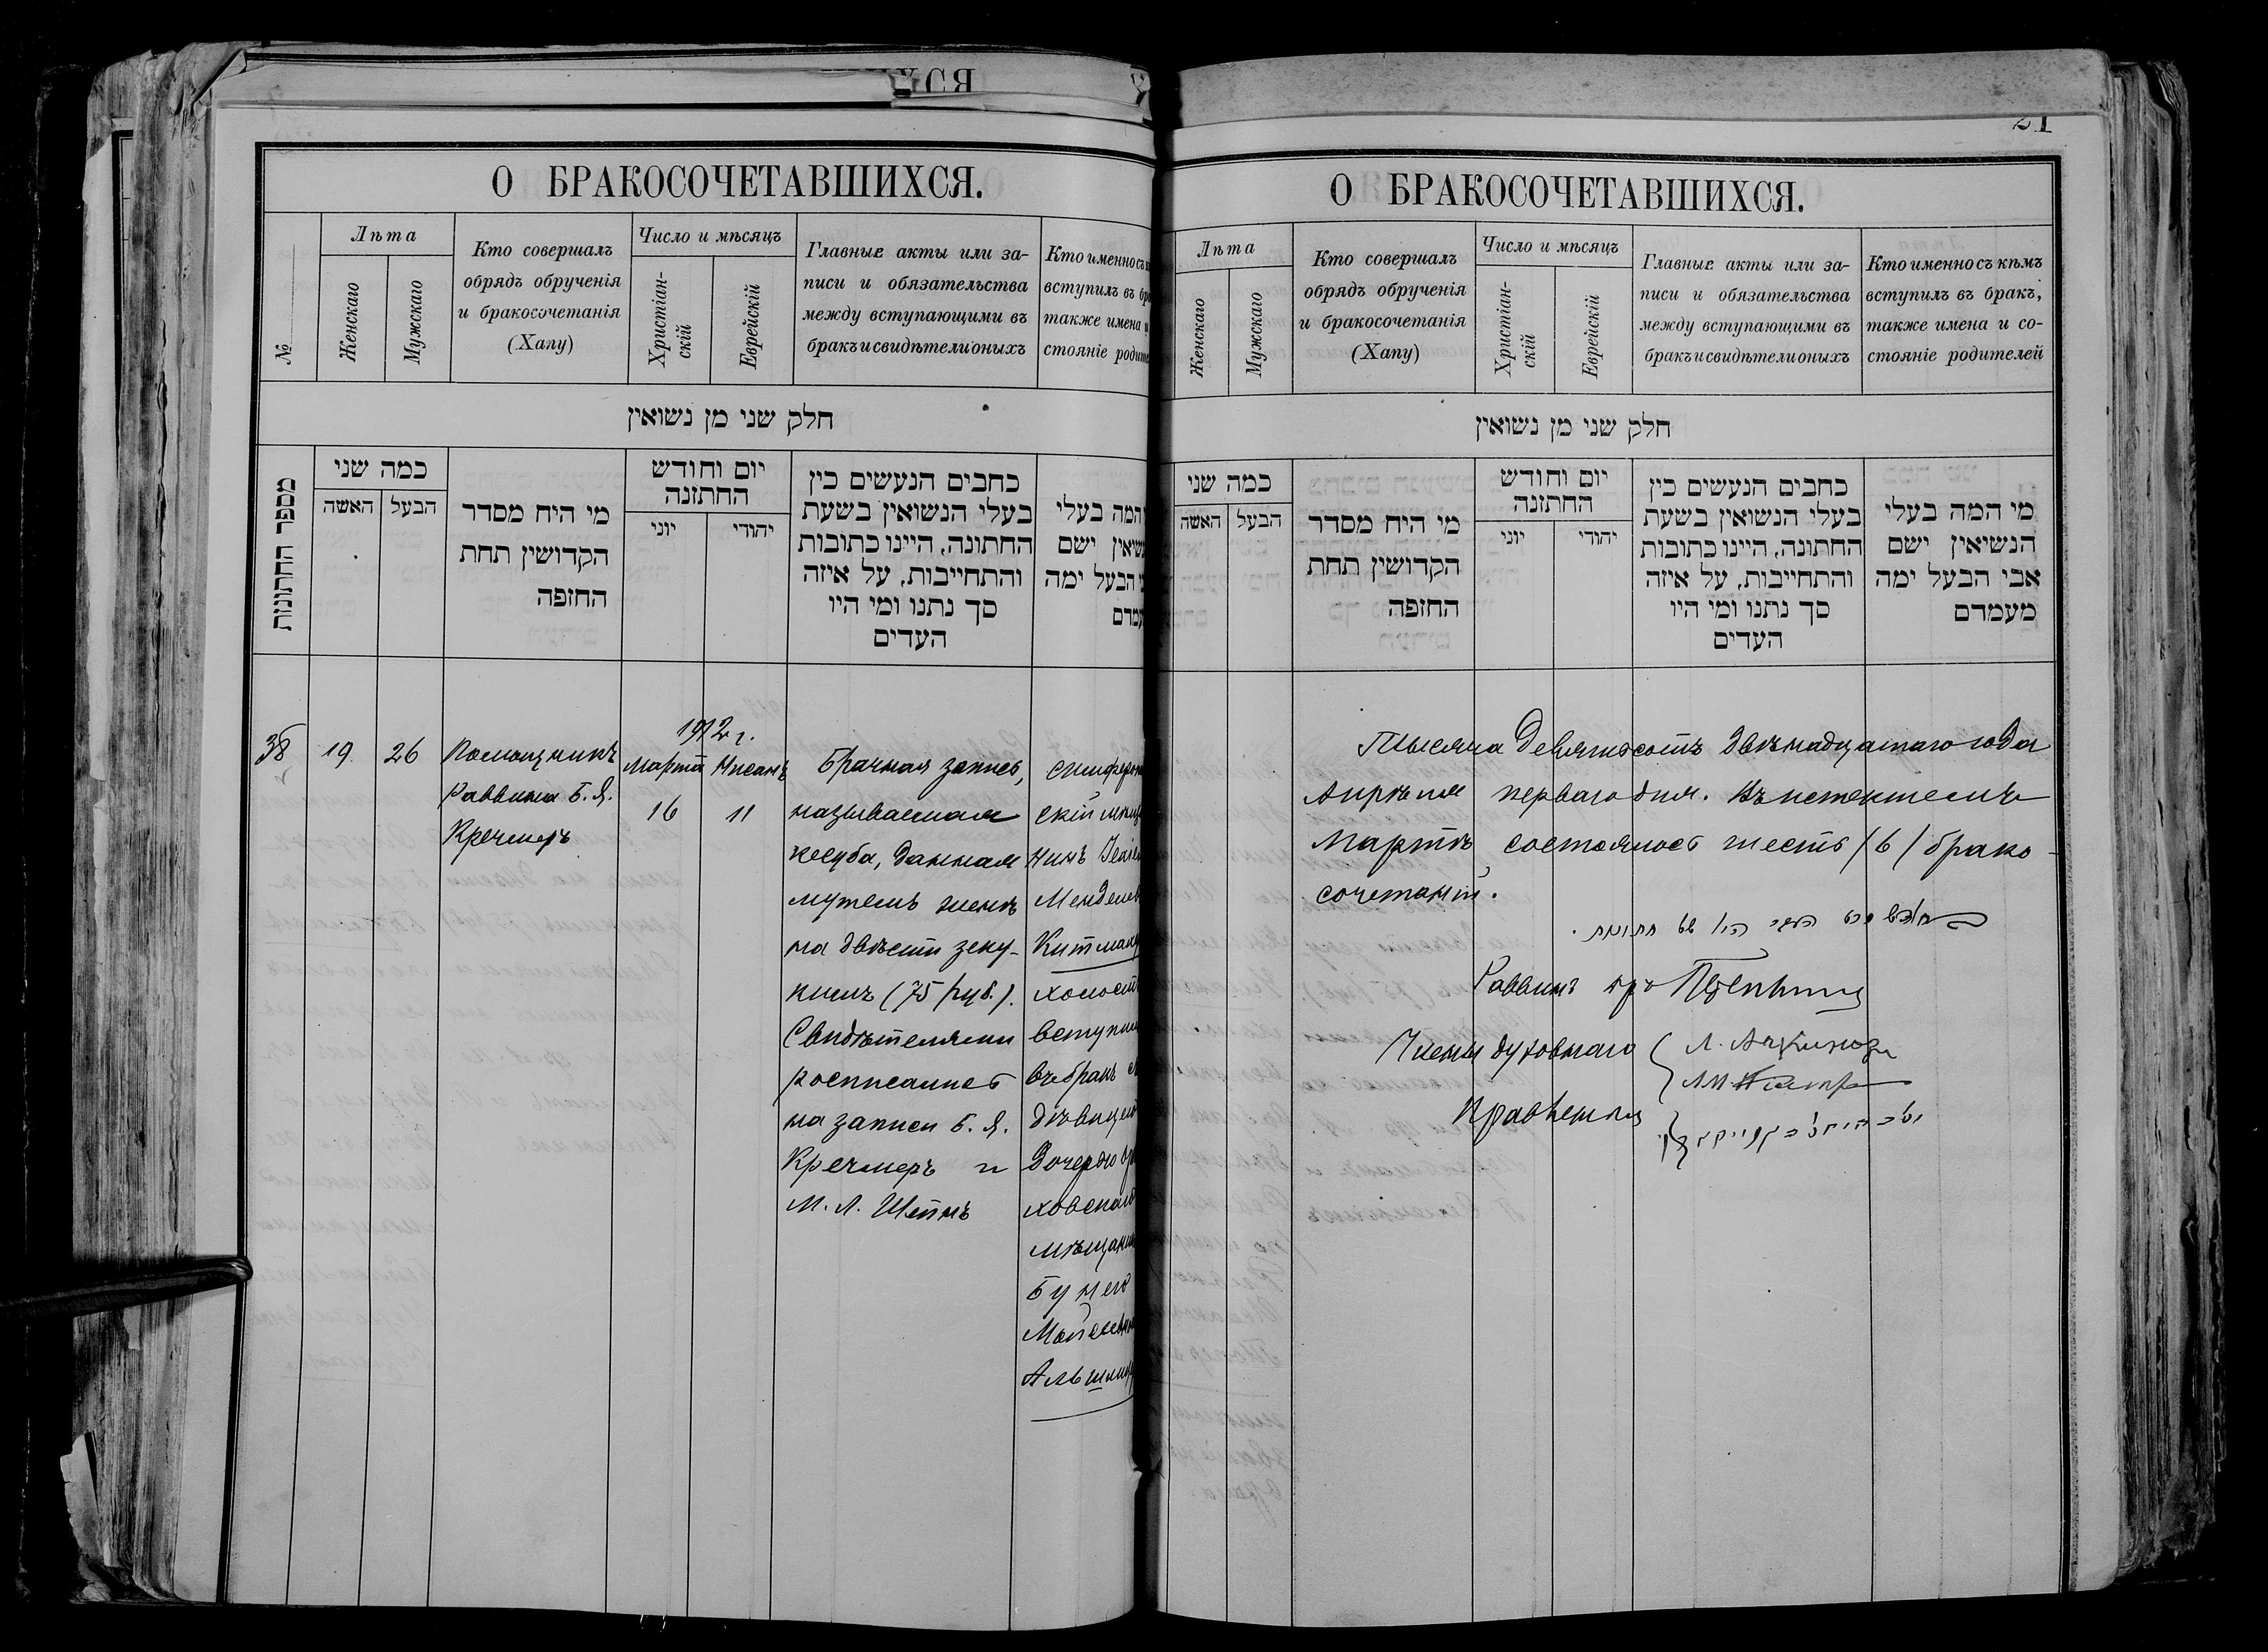 ХСЯ
21
О БРАКОСОЧЕТАВШИХСЯ.
№
Лѣта
Женскаго
Мужскаго
Кто совершалъ
обрядъ обрученія
и бракосочетанія
(Хапу)
Число и мѣсяцъ
Христіан-
скій
Еврейскій
Главные акты или за-
писи и обязательства
между вступающими въ
бракъ и свидѣтели оныхъ
Кто именно съ
вступилъ въ
также имена
стояніе
חלק שני מן נשואין
מספר החתונות
כמה שני
האשה
הבעל
מי היח מסדר
הקדושין תחת
החזפה
יום וחודש
החתזנה
יוני
יהודי
כחבים הנעשים כין
בעלי הנשואין בשעת
החתונה, היינו כתובות
והתחייבות, על איזה
סך נתנו ומי היו
העדים
המה בעלי
ישם
הבעל ימה
38
19
26
Помощникъ
Раввина Б. Я.
Кречмеръ
1912 г.
Марта
16
Нисанъ
11
Брачная запись,
называемая
кесуба, данная
мужемъ женѣ
на двѣсти зеку-
кимъ (75 руб.).
Свидѣтелями
росписались
на записи Б. Я.
Кречмеръ и
М. Л. Штейнъ
скій
нинъ
Менделев
Китман
холост
вступил
въ бракъ
дѣвицей
Дочерью
ховскаго
мѣщанин
Бунею
О БРАКОСОЧЕТАВШИХСЯ.
Лѣта
Женскаго
Мужскаго
Кто совершалъ
обрядъ обрученія
и бракосочетанія
(Хапу)
Число и мѣсяцъ
Христіан-
скій
Еврейскій
Главные акты или за-
писи и обязательства
между вступающими въ
бракъ и свидѣтели оныхъ
Кто именно съ кѣмъ
вступилъ въ бракъ,
также имена и со-
стояніе родителей
חלק שני מן נשואין
כמה שני
האשה
הבעל
מי היח מסדר
הקדושין תחת
החזפה
יום וחודש
החתזנה
יוני
יהודי
כחבים הנעשים כין
בעלי הנשואין בשעת
החתונה, היינו כתובות
והתחייבות, על איזה
סך נתנו ומי היו
העדים
מי המה בעלי
הנשיאין ישם
אבי הבעל ימה
מעמדם
Тысяча девятьсотъ двѣнадцатаго года
Апрѣля перваго дня. Въ истекшемъ
Мартѣ состоялось шесть /6/ брако-
сочетаній.
Раввинъ
Члены духовнаго
Правленія